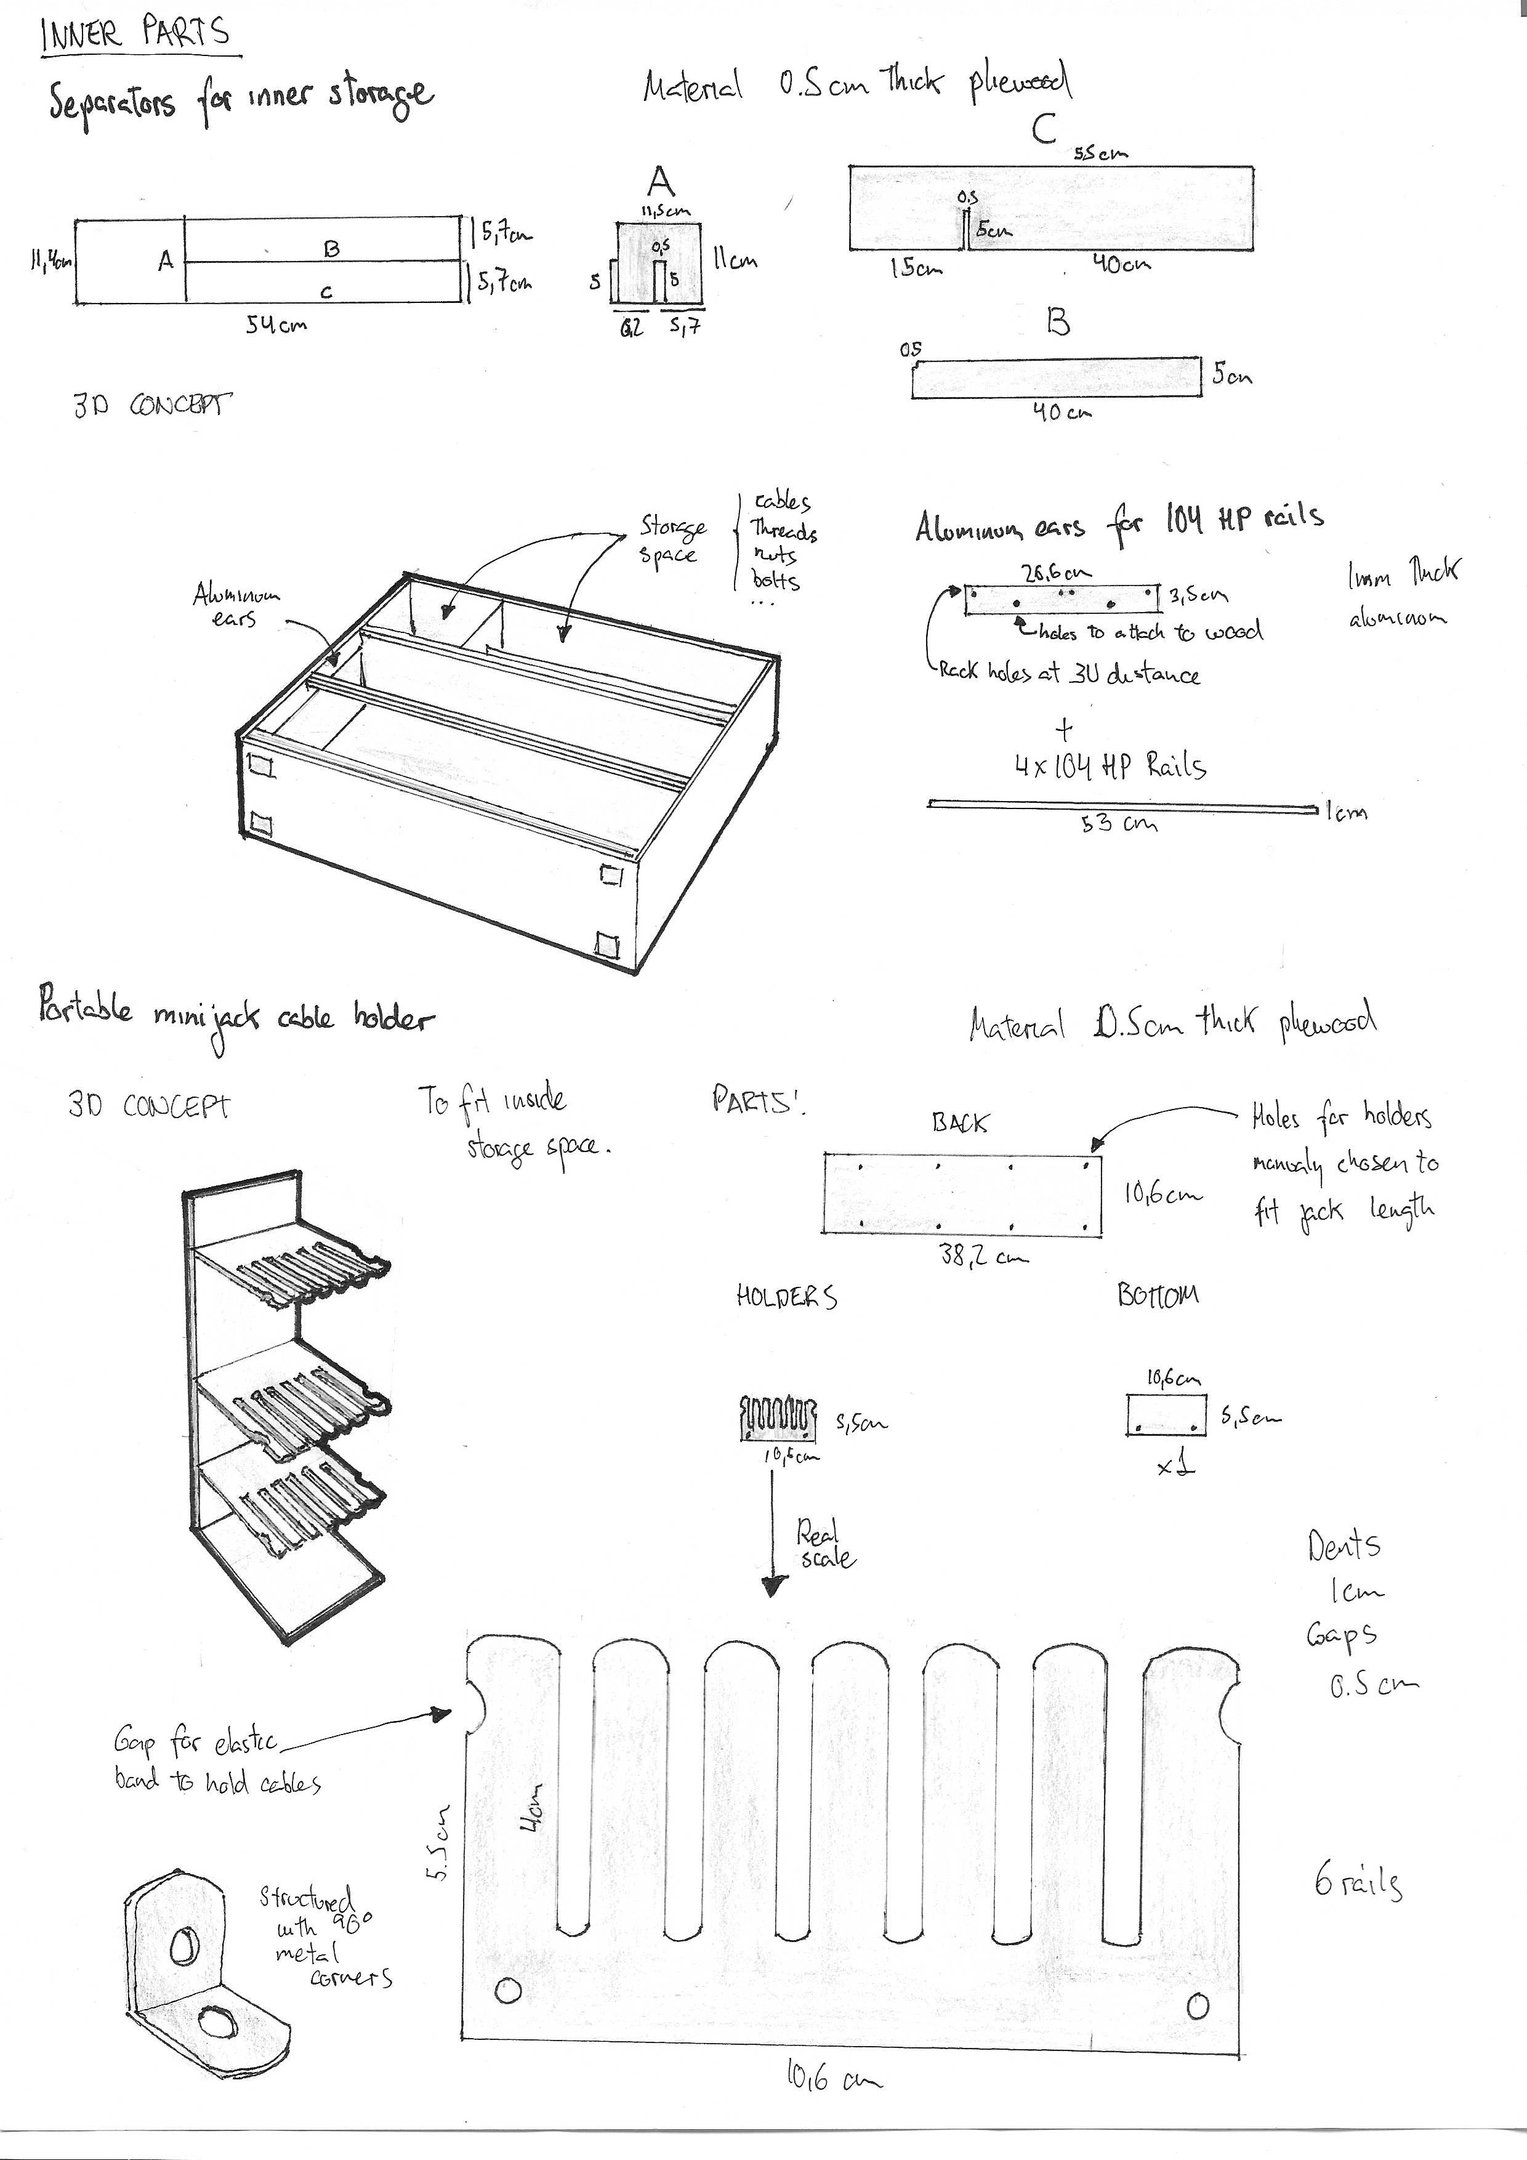 INNER PARTS
Separators for inner storage
Material 0.5cm thick pliewood
11,4cm
A
B
C
5,7cm
5,7cm
54cm
A
11,5cm
0,5
5
5
11cm
6,2
5,7
C
55cm
0.5
5cm
15cm
40cm
B
0.5
5cm
40cm
3D CONCEPT
Aluminum
ears
Storage
space
cables
Threads
nuts
bolts
...
Aluminum ears for 104 HP rails
26,6cm
3,5cm
holes to attach to wood
Rack holes at 3U distance
1mm thick
aluminum
+
4x104 HP Rails
53 cm
1cm
Portable minijack cable holder
Material 0.5cm thick pliewood
3D CONCEPT
To fit inside
storage space.
PARTS:
BACK
10,6cm
38,2 cm
Holes for holders
manualy chosen to
fit jack length
HOLDERS
5,5cm
10,6cm
Real
scale
BOTTOM
10,6cm
5,5cm
x1
Dents
1cm
Gaps
0.5cm
Gap for elastic
band to hold cables
4cm
5.5cm
6 rails
Structured
with 90°
metal
corners
10,6 cm